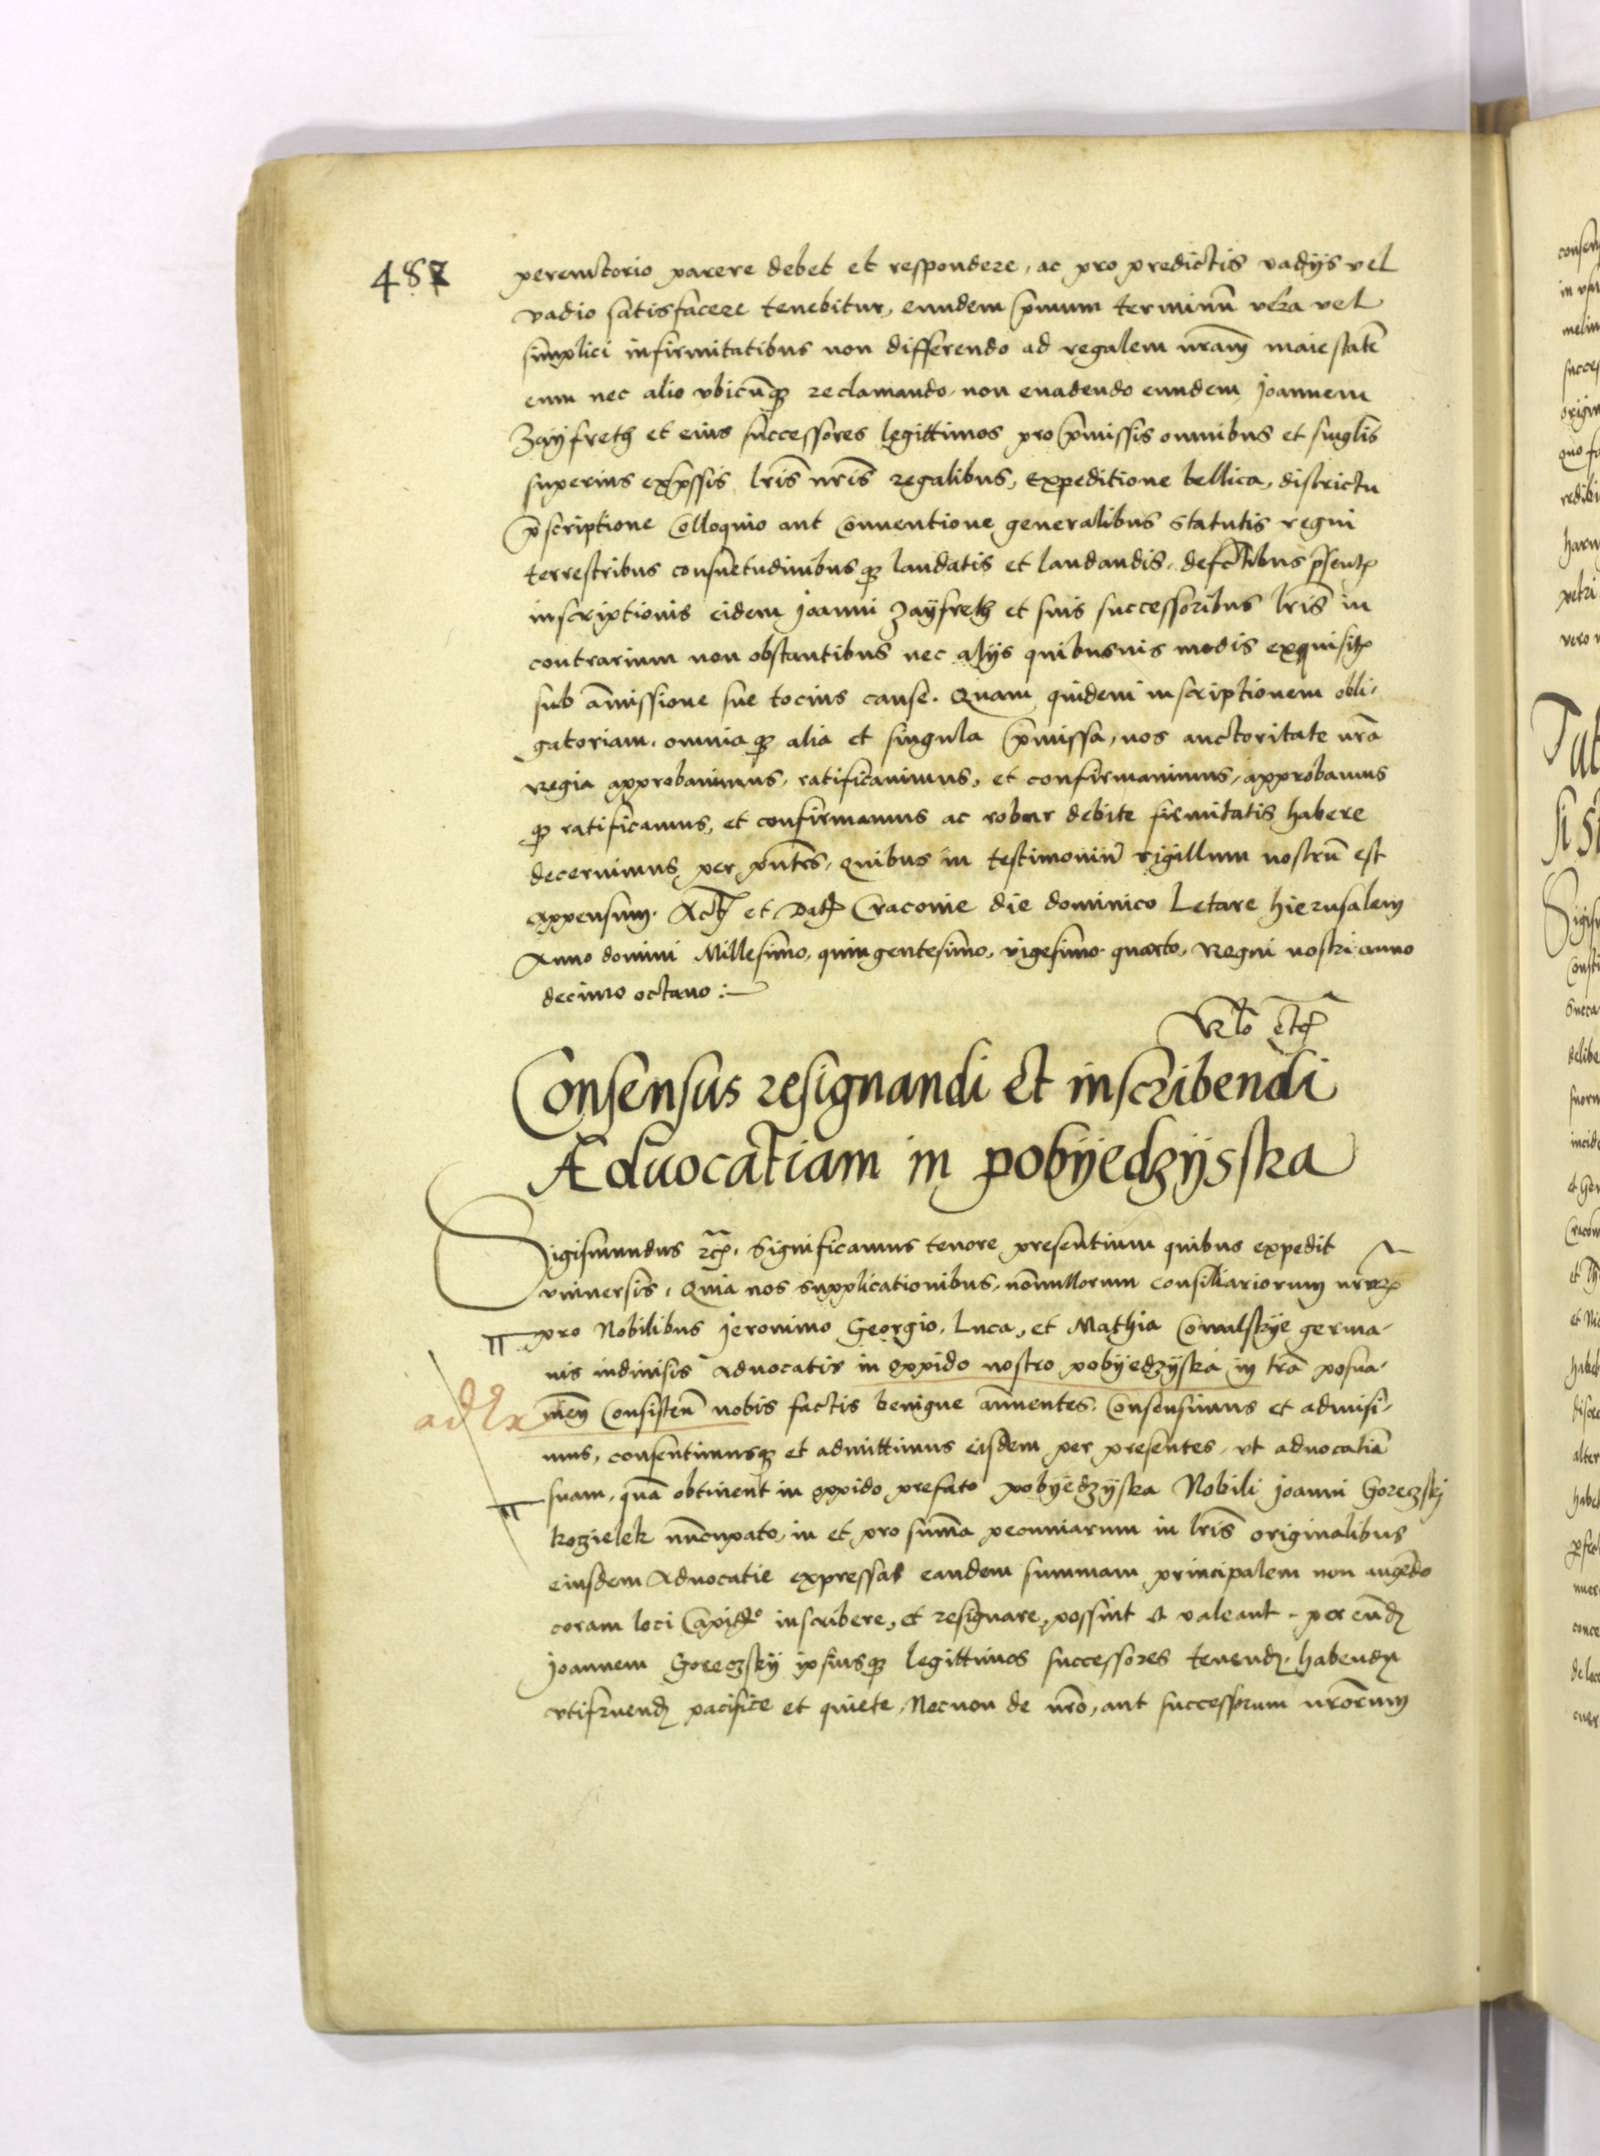 487
peremtorio parere debet et respondere, ac pro predictis vadijs vel
vadio satisfacere tenebitur, eundem pmum terminũ vera vel
simplici infirmitatibus non differendo ad regalem nrãm maiestatẽ
eum nec alio vbicũqȝ reclamando, non euadendo eundem Joannem
Zayfreth et eius successores legittimos pro pmissis omnibus et singlis
superius expssis lris nris regalibus, expeditione bellica, districtu
pscriptione Colloquio aut Conuentione generalibus statutis regni
terrestribus consuetudinibusqȝ laudatis et laudandis, defectibus psentꝭ
inscriptionis eidem Joanni Zayfreth et suis successoribus lris in
contrarium non obstantibus nec alijs quibusuis modis exquisitꝭ
sub amissione sue tocius cause. Quam quidem inscriptionem obli-
gatoriam, omniaqȝ alia et singula pmissa, nos auctoritate nrã
Regia approbauimus, ratificauimus, et confirmauimus, approbamus
qȝ ratificamus, et confirmamus ac robur debite firmitatis habere
decernimus per pntes, quibus in testimoniũ sigillum nostrũ est
appensum. Actꝭ et Datꝭ Cracouie die dominico Letare hierusalem
Anno domini Millesimo, quingentesimo, vigesimo quarto, Regni nostri anno
decimo octauo :—
Rlo etcꝭ
Consensus resignandi et inscribendi
Aduocatiam in pobÿedzÿska
Sigismundus etcꝭ. Significamus tenore presentium quibus expedit
vniuersis, Quia nos supplicationibus nonnullorum consiliariorum nrorꝝ
pro Nobilibus Jeronimo Georgio, Luca, et Mathia Cowalskÿe germa-
nis indiuisis Aduocatis in oppido nostro pobÿedzÿska in trã posna-
nien Consisteñ nobis factis benigne annuentes, Consensimus et admisi-
ad lx
mus, consentimusqȝ et admittimus eisdem per presentes, vt aduocatiã
suam, quã obtinent in oppido prefato pobÿedzÿska Nobili Joanni Goreczskj
kozielek nũcupato, in et pro sum̃a pecuniarum in lris originalibus
eiusdem Aduocatie expressas eandem summam principalem non augẽdo
coram loci Capitꝭo inscribere, et resignare, possint et valeant, per eũdꝭ
Joannem Goreczskÿ ipsiusqȝ legittimos successores tenendꝭ, habendꝭ
vtifruendꝭ pacifice et quiete, Necnon de nro, aut successorum nrorum